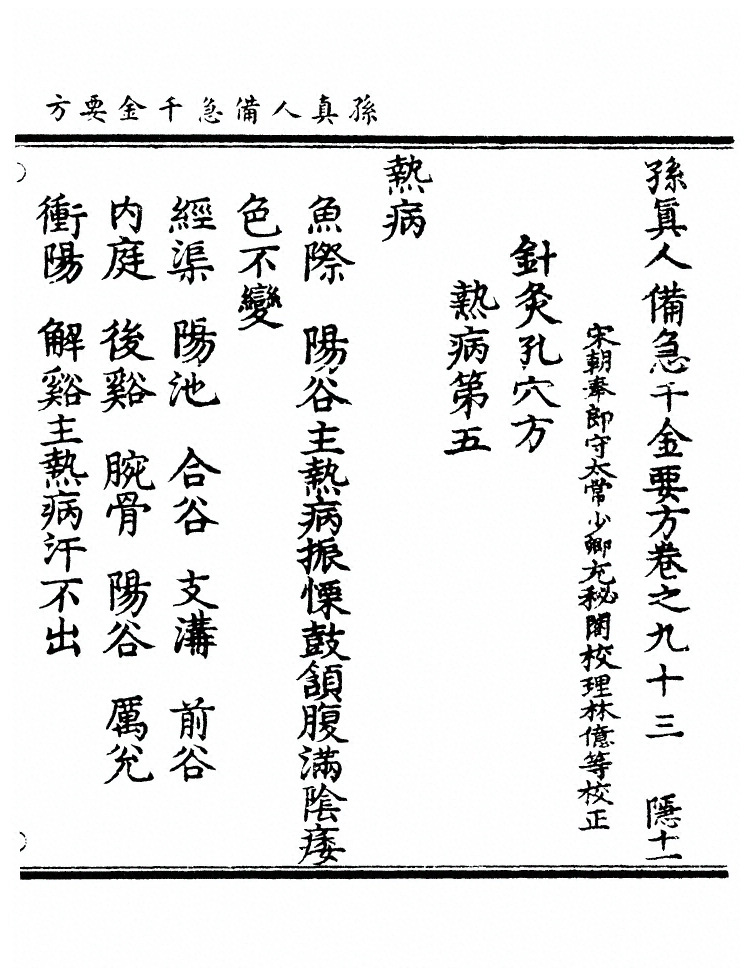 孫真人備急千金要方
孫眞人備急千金要方卷之九十三　隱十一
宋朝奉郎守太常少卿充秘閣校理林億等校正
針灸孔穴方
熱病第五
熱病
魚際　陽谷主熱病振慄鼓頷腹滿陰痿
色不變
經渠　陽池　合谷　支溝　前谷
內庭　後谿　腕骨　陽谷　厲兊
衝陽　解谿主熱病汗不出